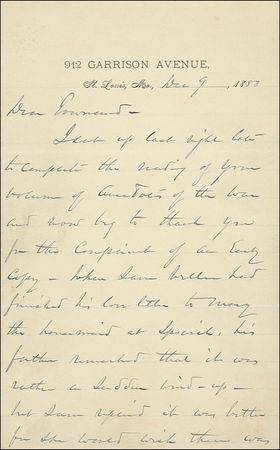 912 GARRISON AVENUE,
St. Louis, Mo, Dec 9, 1883
Dear Townsend -
I sat up last night late
to complete the reading of your
volume of Anecdotes of the War
and now beg to thank you
for the Compliment of an Early
Copy - When Sam Weller had
finished his love letter to Mary
the housemaid at Ipswich, his
father remarked that it was
rather a Sudden wind-up -
but Sam replied it was better
for She would wish there was